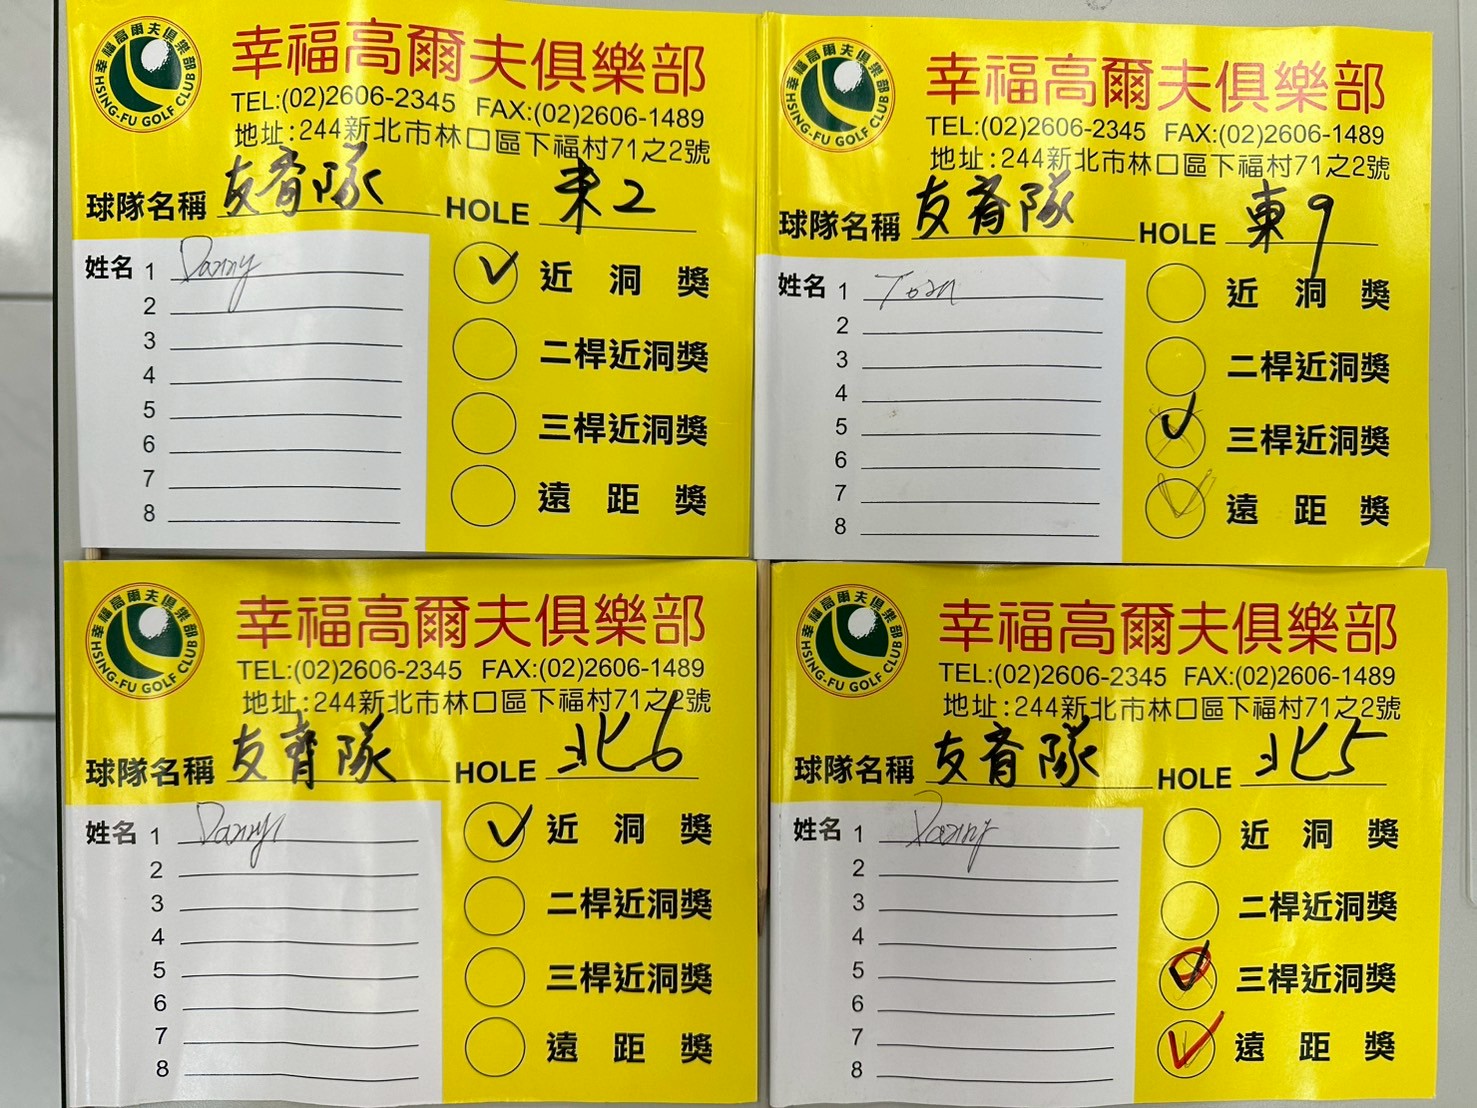 幸福高爾夫俱樂部
HSING-FU GOLF CLUB
幸福高爾夫俱樂部
TEL:(02)2606-2345 FAX:(02)2606-1489
地址:244新北市林口區下福村71之2號
球隊名稱 友齊隊 HOLE 東2
姓名 1 Danny
2
3
4
5
6
7
8
近洞獎
二桿近洞獎
三桿近洞獎
遠距獎
幸福高爾夫俱樂部
HSING-FU GOLF CLUB
幸福高爾夫俱樂部
TEL:(02)2606-2345 FAX:(02)2606-1489
地址:244新北市林口區下福村71之2號
球隊名稱 友齊隊 HOLE 東9
姓名 1 Tom
2
3
4
5
6
7
8
近洞獎
二桿近洞獎
三桿近洞獎
遠距獎
幸福高爾夫俱樂部
HSING-FU GOLF CLUB
幸福高爾夫俱樂部
TEL:(02)2606-2345 FAX:(02)2606-1489
地址:244新北市林口區下福村71之2號
球隊名稱 友齊隊 HOLE 北6
姓名 1 Danny
2
3
4
5
6
7
8
近洞獎
二桿近洞獎
三桿近洞獎
遠距獎
幸福高爾夫俱樂部
HSING-FU GOLF CLUB
幸福高爾夫俱樂部
TEL:(02)2606-2345 FAX:(02)2606-1489
地址:244新北市林口區下福村71之2號
球隊名稱 友齊隊 HOLE 北5
姓名 1 Danny
2
3
4
5
6
7
8
近洞獎
二桿近洞獎
三桿近洞獎
遠距獎